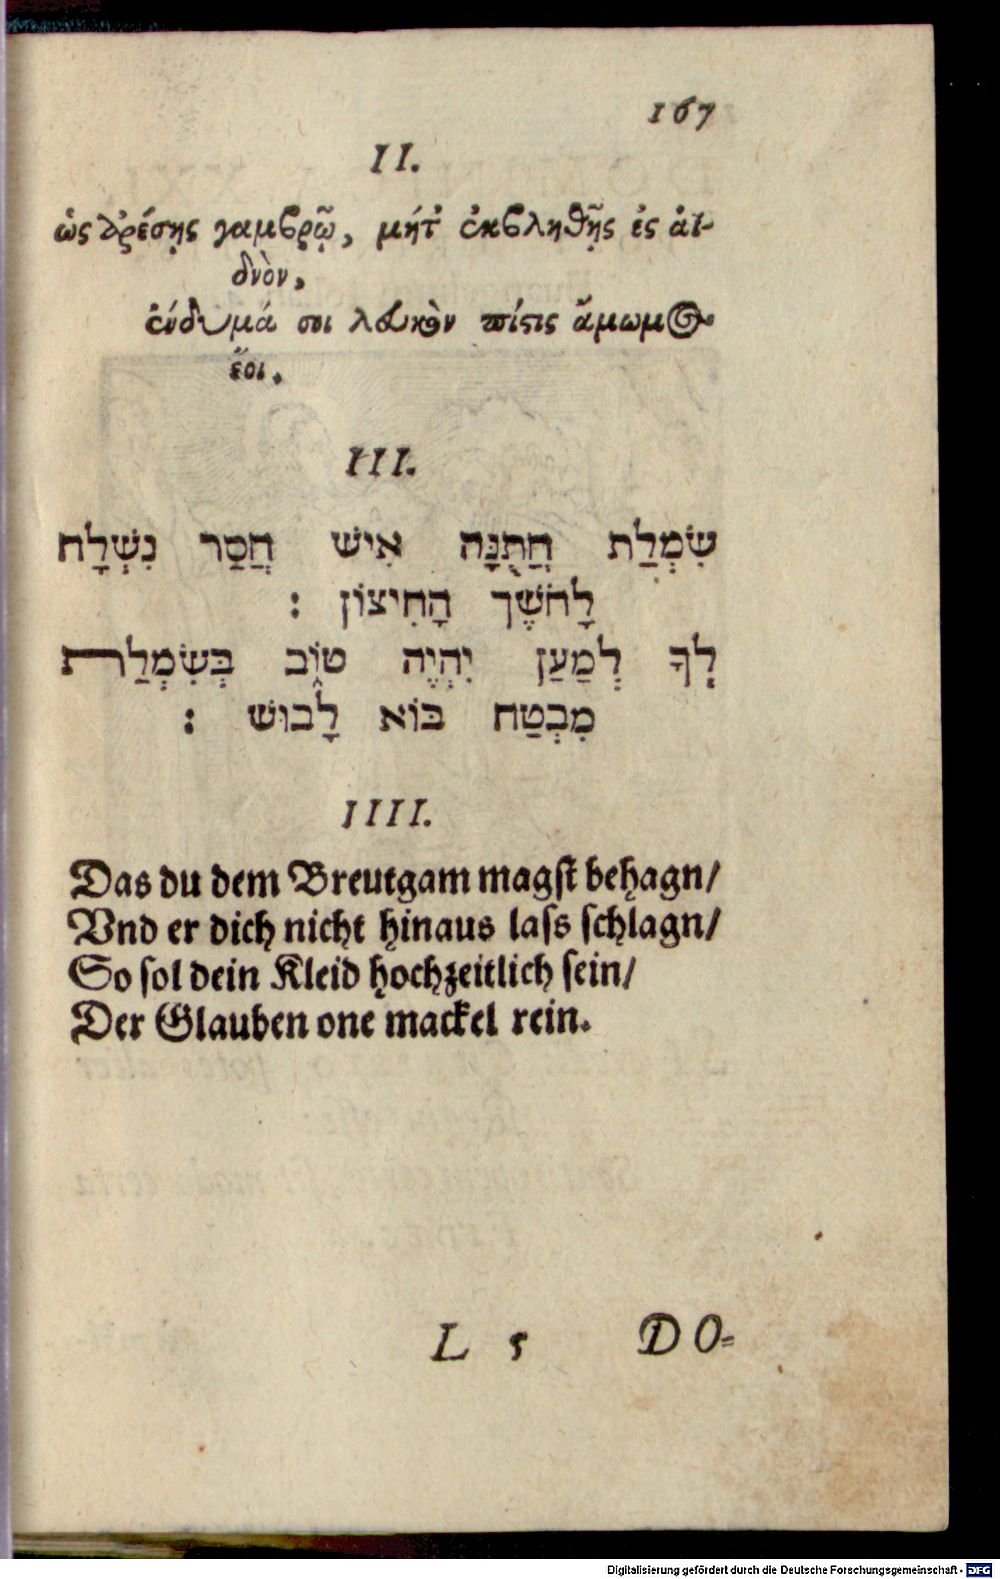 167
II.
ὡς ἀρέσῃς γαμβρῷ, μήτ᾽ ἐκβληθῇς ἐς ἀϊ-
δνὸν,
ἔνδυμά σοι λευκὸν πίστις ἄμωμος
ἔοι.
III.
שִׂמְלַת חֲתֻנָּה אִישׁ חֲסַר נִשְׁלָח
לָחֹשֶׁך הָחִיצוֹן :
לְךָ לְמַעַן יִהְיֶה טוֹב בְּשִׂמְלַת
מִבְטַח בּוֹא לָבוּשׁ :
IIII.
Das du dem Breutgam magst behagn/
Vnd er dich nicht hinaus lass schlagn/
So sol dein Kleid hochzeitlich sein/
Der Glauben one mackel rein.
L 5 DO=
Digitalisierung gefördert durch die Deutsche Forschungsgemeinschaft - DFG